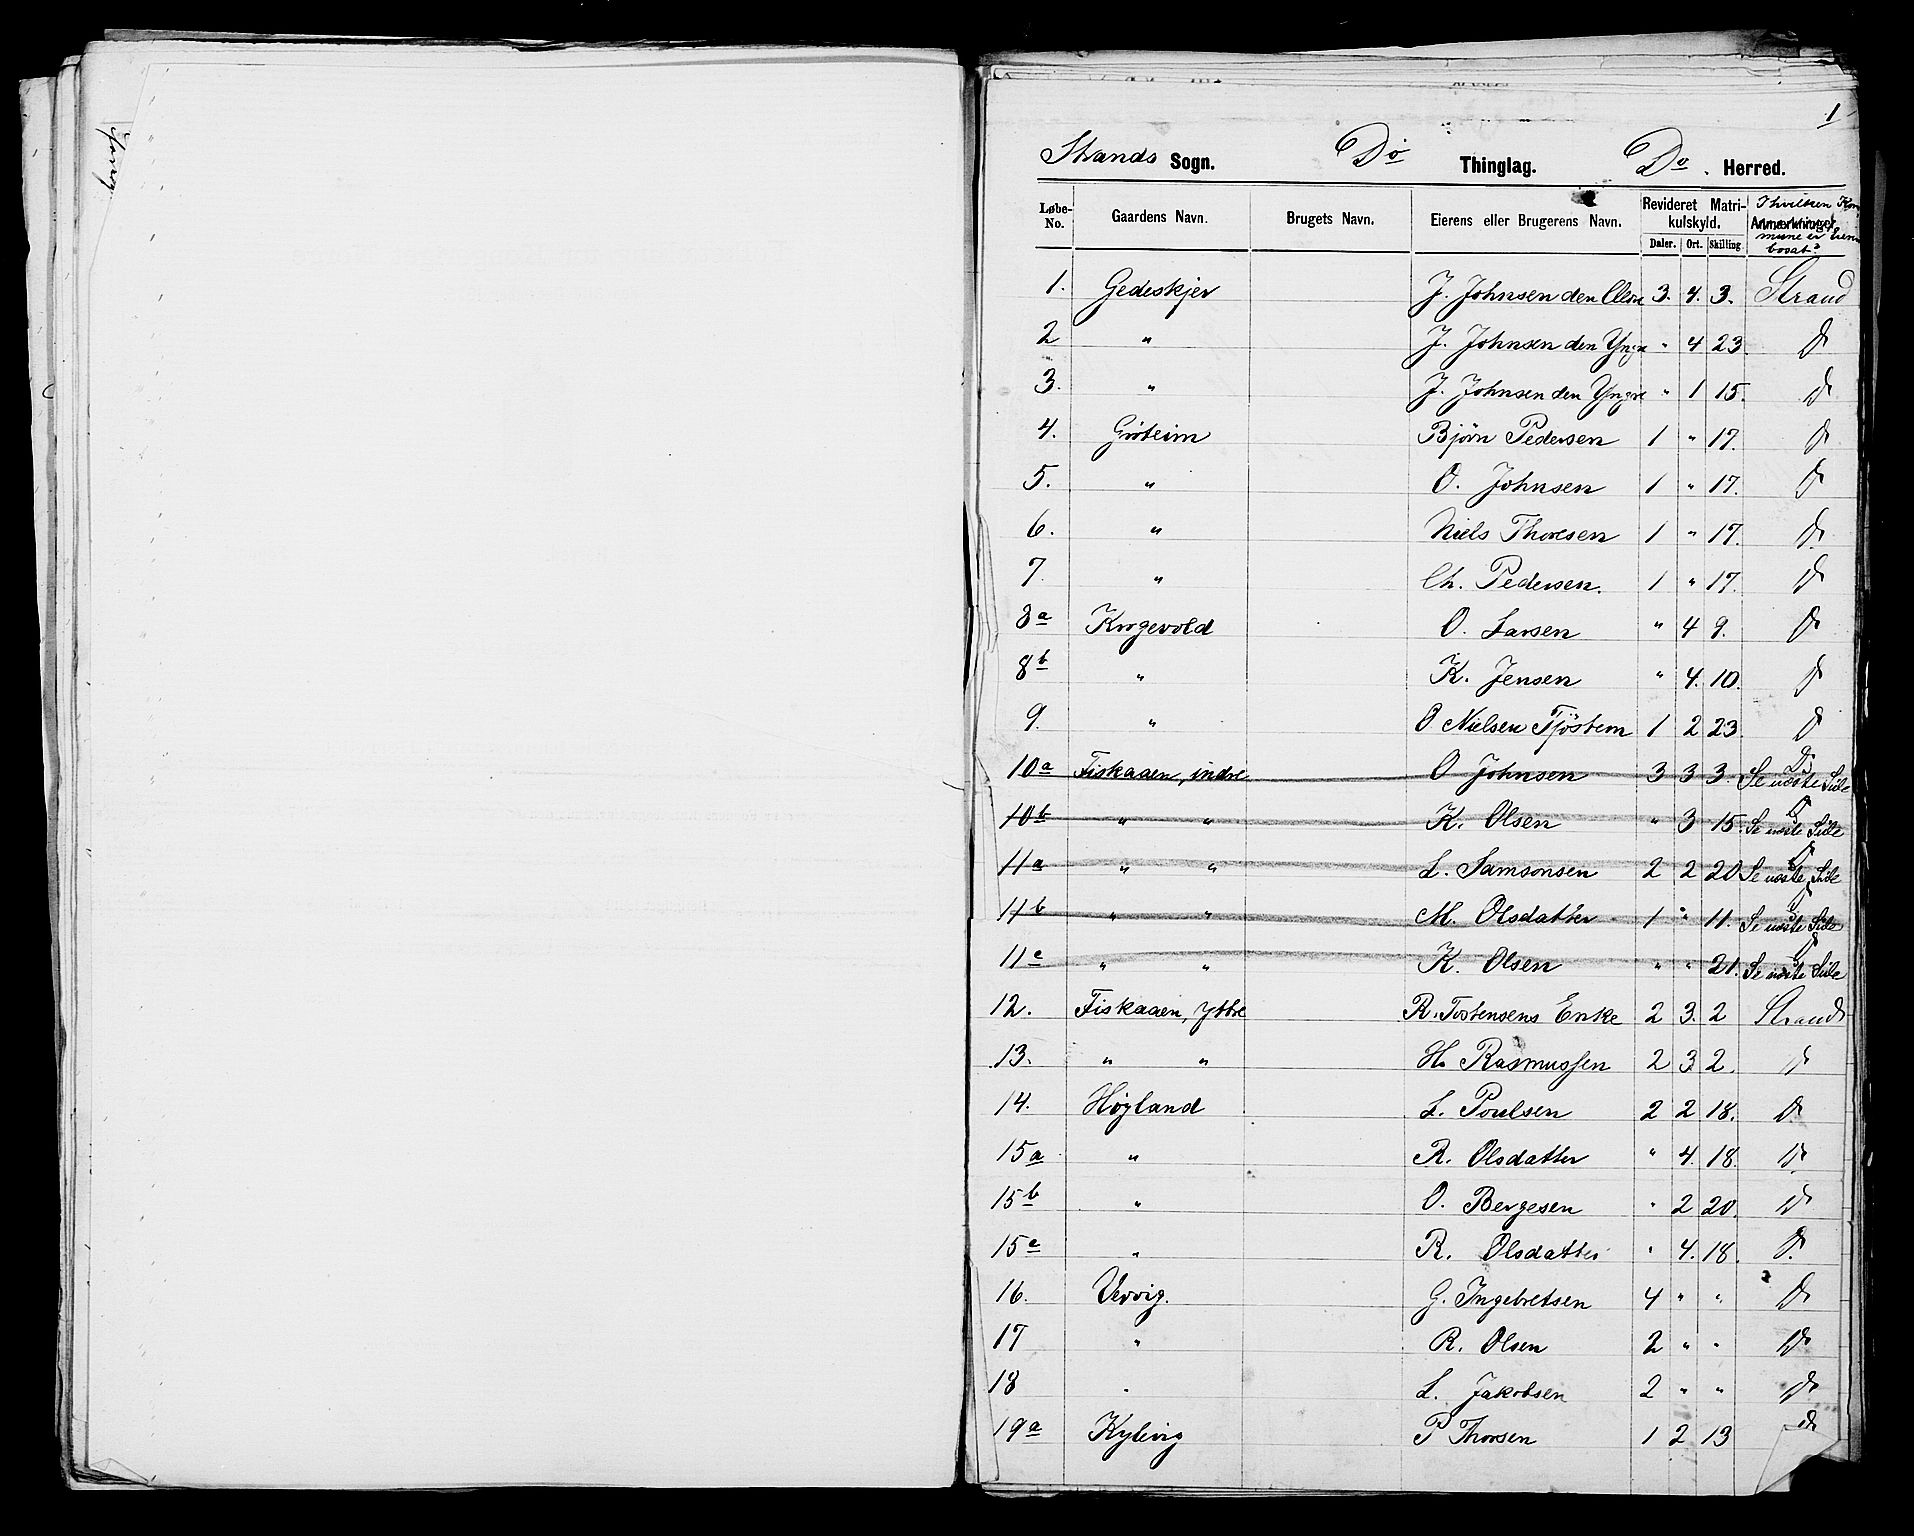 1
Strands Sogn. Do Thinglag. Do. Herred.
Løbe-No. Gaardens Navn. Brugets Navn. Eierens eller Brugerens Navn. Revideret Matrikulskyld. Daler. Ort. Skilling Anmærkninger I hvilken Kommune er Eieren bosat?
1. Gedeskjer J. Johnsen den Eldre 3. 4. 3. Strand
2 " J. Johnsen den Yngre " 4 23. Do
3. " J. Johnsen den Yngre " 1 15. Do
4. Grøteim Bjørn Pedersen 1 " 17. Do
5. " O. Johnsen 1 " 17. Do
6. " Niels Thoresen 1 " 17. Do
7. " Ch. Pedersen. 1 " 17. Do
8a Krogevold O. Larsen " 4 9. Do
8b " K. Jensen " 4. 10. Do
9. " O Nielsen Tjöstem 1 2 23. Do
10a Fiskaaen, indre O Johnsen 3 3 3. Do Se næste Side
10b " " K. Olsen " 3 15. Do Se næste Side
11a " " L. Samsonsen 2 2 20 Do Se næste Side
11b " " M. Olsdatter 1 " 11. Do Se næste Side
11c " " K. Olsen " " 21. Do Se næste Side
12. Fiskaaen, Ytre R. Tostensens Enke 2 3. 2 Strand
13. " " H. Rasmussen 2 3 2. Do
14. Høyland L. Poulsen 2 2 18. Do
15a " R. Olsdatter " 4. 18. Do
15b " O. Bergesen " 2 20. Do
15c " R. Olsdatter " 4. 18. Do
16. Vervig. G. Ingebretsen 4 " " Do
17 " R. Olsen 2 " " Do
18 " L. Jakobsen 2 " " Do
19a Kylevig P Thorsen 1 2 13 Do